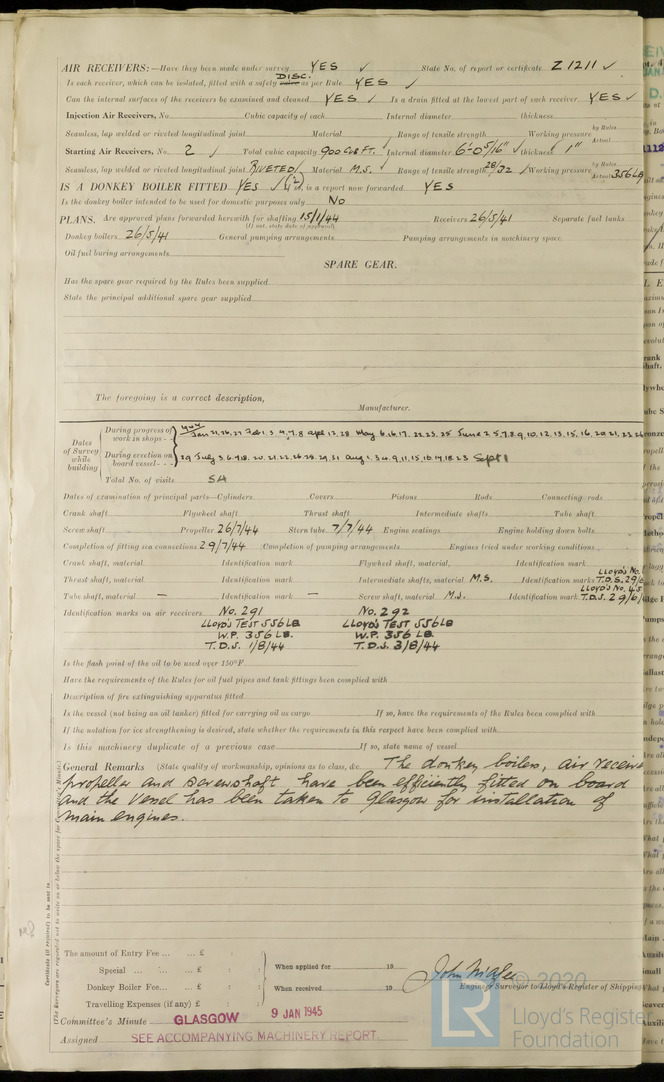 AIR RECEIVERS:—Have they been made under survey YES ✓ State No. of report or certificate Z 1211 ✓
Is each receiver, which can be isolated, fitted with a safety valve as per Rule DISC. YES ✓
Can the internal surfaces of the receivers be examined and cleaned YES ✓ Is a drain fitted at the lowest part of each receiver YES ✓
Injection Air Receivers, No. Cubic capacity of each Internal diameter thickness
Seamless, lap welded or riveted longitudinal joint Material Range of tensile strength Working pressure by Rules Actual
Starting Air Receivers, No. 2 ✓ Total cubic capacity 900 Cub FT. ✓ Internal diameter 6'-0 5/16" ✓ thickness 1"
Seamless, lap welded or riveted longitudinal joint RIVETED Material M.S. ✓ Range of tensile strength 28/32 ✓ Working pressure by Rules Actual 356 LB
IS A DONKEY BOILER FITTED YES ✓ (2) is a report now forwarded YES
Is the donkey boiler intended to be used for domestic purposes only No
PLANS. Are approved plans forwarded herewith for shafting 15/1/44 Receivers 26/5/41 Separate fuel tanks
(If not, state date of approval)
Donkey boilers 26/5/41 General pumping arrangements Pumping arrangements in machinery space
Oil fuel buring arrangements
SPARE GEAR.
Has the spare gear required by the Rules been supplied
State the principal additional spare gear supplied
The foregoing is a correct description,
Manufacturer.
Dates of Survey while building
During progress of work in shops - - 1944 Jan 21, 26, 27 Feb 1, 3, 4, 7, 8 apr 12, 28 May 6, 16, 17, 22, 23, 25 June 2, 5, 7, 8, 9, 10, 12, 13, 15, 16, 20, 21, 22, 26
During erection on board vessel - - - 29 July 3, 6, 9, 18, 20, 21, 22, 26, 28, 29, 31 aug 1, 3, 4, 9, 11, 15, 16, 17, 18, 23 Sept 1
Total No. of visits 54
Dates of examination of principal parts—Cylinders Covers Pistons Rods Connecting rods
Crank shaft Flywheel shaft Thrust shaft Intermediate shafts Tube shaft
Screw shaft Propeller 26/7/44 Stern tube 7/7/44 Engine seatings Engine holding down bolts
Completion of fitting sea connections 29/7/44 Completion of pumping arrangements Engines tried under working conditions
Crank shaft, material Identification mark Flywheel shaft, material Identification mark
Thrust shaft, material Identification mark Intermediate shafts, material M.S. Identification marks LLOYD'S No. T.D.S. 29/6
Tube shaft, material – Identification mark – Screw shaft, material M.S. Identification mark LLOYD'S No. 45 T.D.S. 29/6/
Identification marks on air receivers No. 291 No. 292
LLOYD'S TEST 556 LB LLOYD'S TEST 556 LB
W.P. 356 LB. W.P. 356 LB.
T.D.S. 1/8/44 T.D.S. 3/8/44
Is the flash point of the oil to be used over 150°F
Have the requirements of the Rules for oil fuel pipes and tank fittings been complied with
Description of fire extinguishing apparatus fitted
Is the vessel (not being an oil tanker) fitted for carrying oil as cargo If so, have the requirements of the Rules been complied with
If the notation for ice strengthening is desired, state whether the requirements in this respect have been complied with
Is this machinery duplicate of a previous case If so, state name of vessel
General Remarks (State quality of workmanship, opinions as to class, &c. The donkey boilers, air receive
propeller and screwshaft have been efficiently fitted on board
and the Vessel has been taken to Glasgow for installation of
main engines.
Certificate (if required) to be sent to
(The Surveyors are requested not to write on or below the space for Committee's Minute.)
The amount of Entry Fee ... £ : :
Special ... £ : :
Donkey Boiler Fee ... £ : :
Travelling Expenses (if any) £ : :
When applied for 19
When received 19
Engineer Surveyor to Lloyd's Register of Shipping
Committee's Minute GLASGOW 9 JAN 1945
Assigned SEE ACCOMPANYING MACHINERY REPORT.
© 2020
LR
Lloyd's Register
Foundation